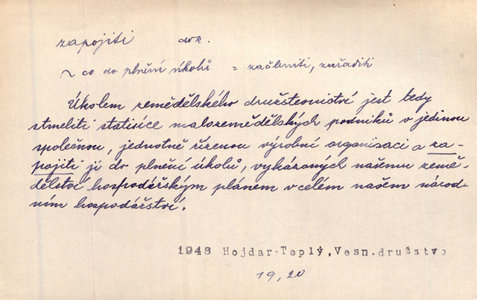 zapojiti dok.
~ co do plnění úkolů = začleniti, zařaditi
Úkolem zemědělského družstevnictví jest tedy
stmeliti statisíce malozemědělských podniků v jedinou
společnou, jednotně řízenou výrobní organisaci a za-
pojiti ji do plnění úkolů, vykázaných našemu země-
dělství hospodářským plánem v celém našem národ-
ním hospodářství.
1948 Hojdar-Teplý, Vesn. družstvo
19, 20